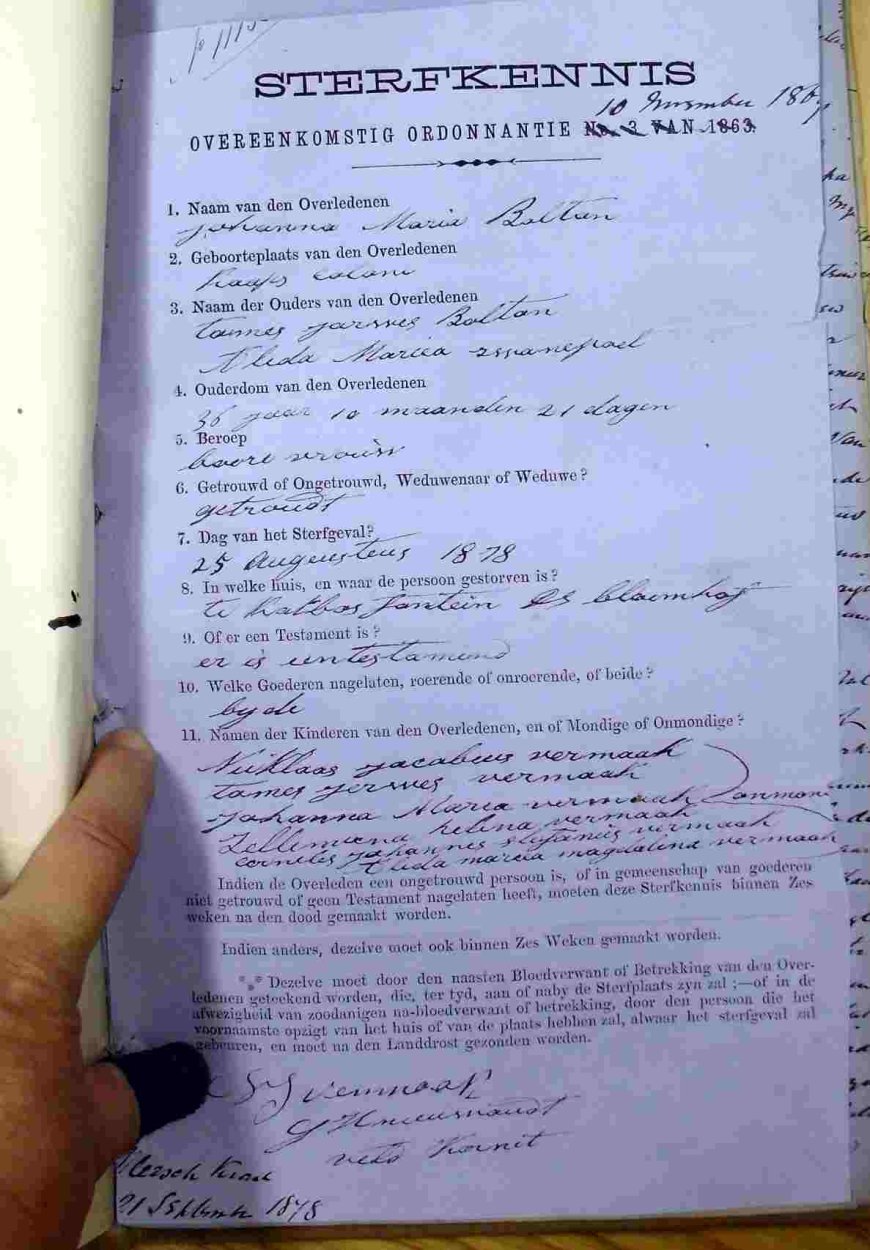 STERFKENNIS
10 November 186
OVEREENKOMSTIG ORDONNANTIE No. 3 VAN 1863.
1. Naam van den Overledenen
Johanna Maria Bolton
2. Geboorteplaats van den Overledenen
Kaaps Coloni
3. Naam der Ouders van den Overledenen
Bolton
Aleda Marica zwanepoel
4. Ouderdom van den Overledenen
36 jaar 10 maanden 21 dagen
5. Beroep
boere vrouw
6. Getrouwd of Ongetrouwd, Weduwenaar of Weduwe?
getroudt
7. Dag van het Sterfgeval?
25 Augustus 1878
8. In welke huis, en waar de persoon gestorven is?
te fontein bloemhof
9. Of er een Testament is?
er is een testamend
10. Welke Goederen nagelaten, roerende of onroerende, of beide?
byde
11. Namen der Kinderen van den Overledenen, en of Mondige of Onmondige?
Niklaas Jacobus vermaak
vermaak
Johanna Maria vermaak onmon
helina vermaak
Johannes stefanus vermaak
Aleda maria magdalena vermaak
Indien de Overleden een ongetrouwd persoon is, of in gemeenschap van goederen
niet getrouwd of geen Testament nagelaten heeft, moeten deze Sterfkennis binnen Zes
weken na den dood gemaakt worden.
Indien anders, dezelve moet ook binnen Zes Weken gemaakt worden.
*** Dezelve moet door den naasten Bloedverwant of Betrekking van den Over-
ledenen geteekend worden, die, ter tyd, aan of naby de Sterfplaats zyn zal ;—of in de
afwezigheid van zoodanigen na-bloedverwant of betrekking, door den persoon die het
voornaamste opzigt van het huis of van de plaats hebben zal, alwaar het sterfgeval zal
gebeuren, en moet na den Landdrost gezonden worden.
Vermaak
veld Kornit
21 1878